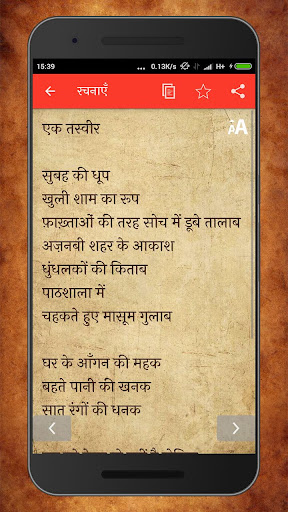 15:39
रचनाएँ
एक तस्वीर
AA
सुबह की धूप
खुली शाम का रूप
फ़ाख़्ताओं की तरह सोच में डूबे तालाब
अज़नबी शहर के आकाश
धुंधलकों की किताब
पाठशाला में
चहकते हुए मासूम गुलाब
घर के आँगन की महक
बहते पानी की खनक
सात रंगों की धनक